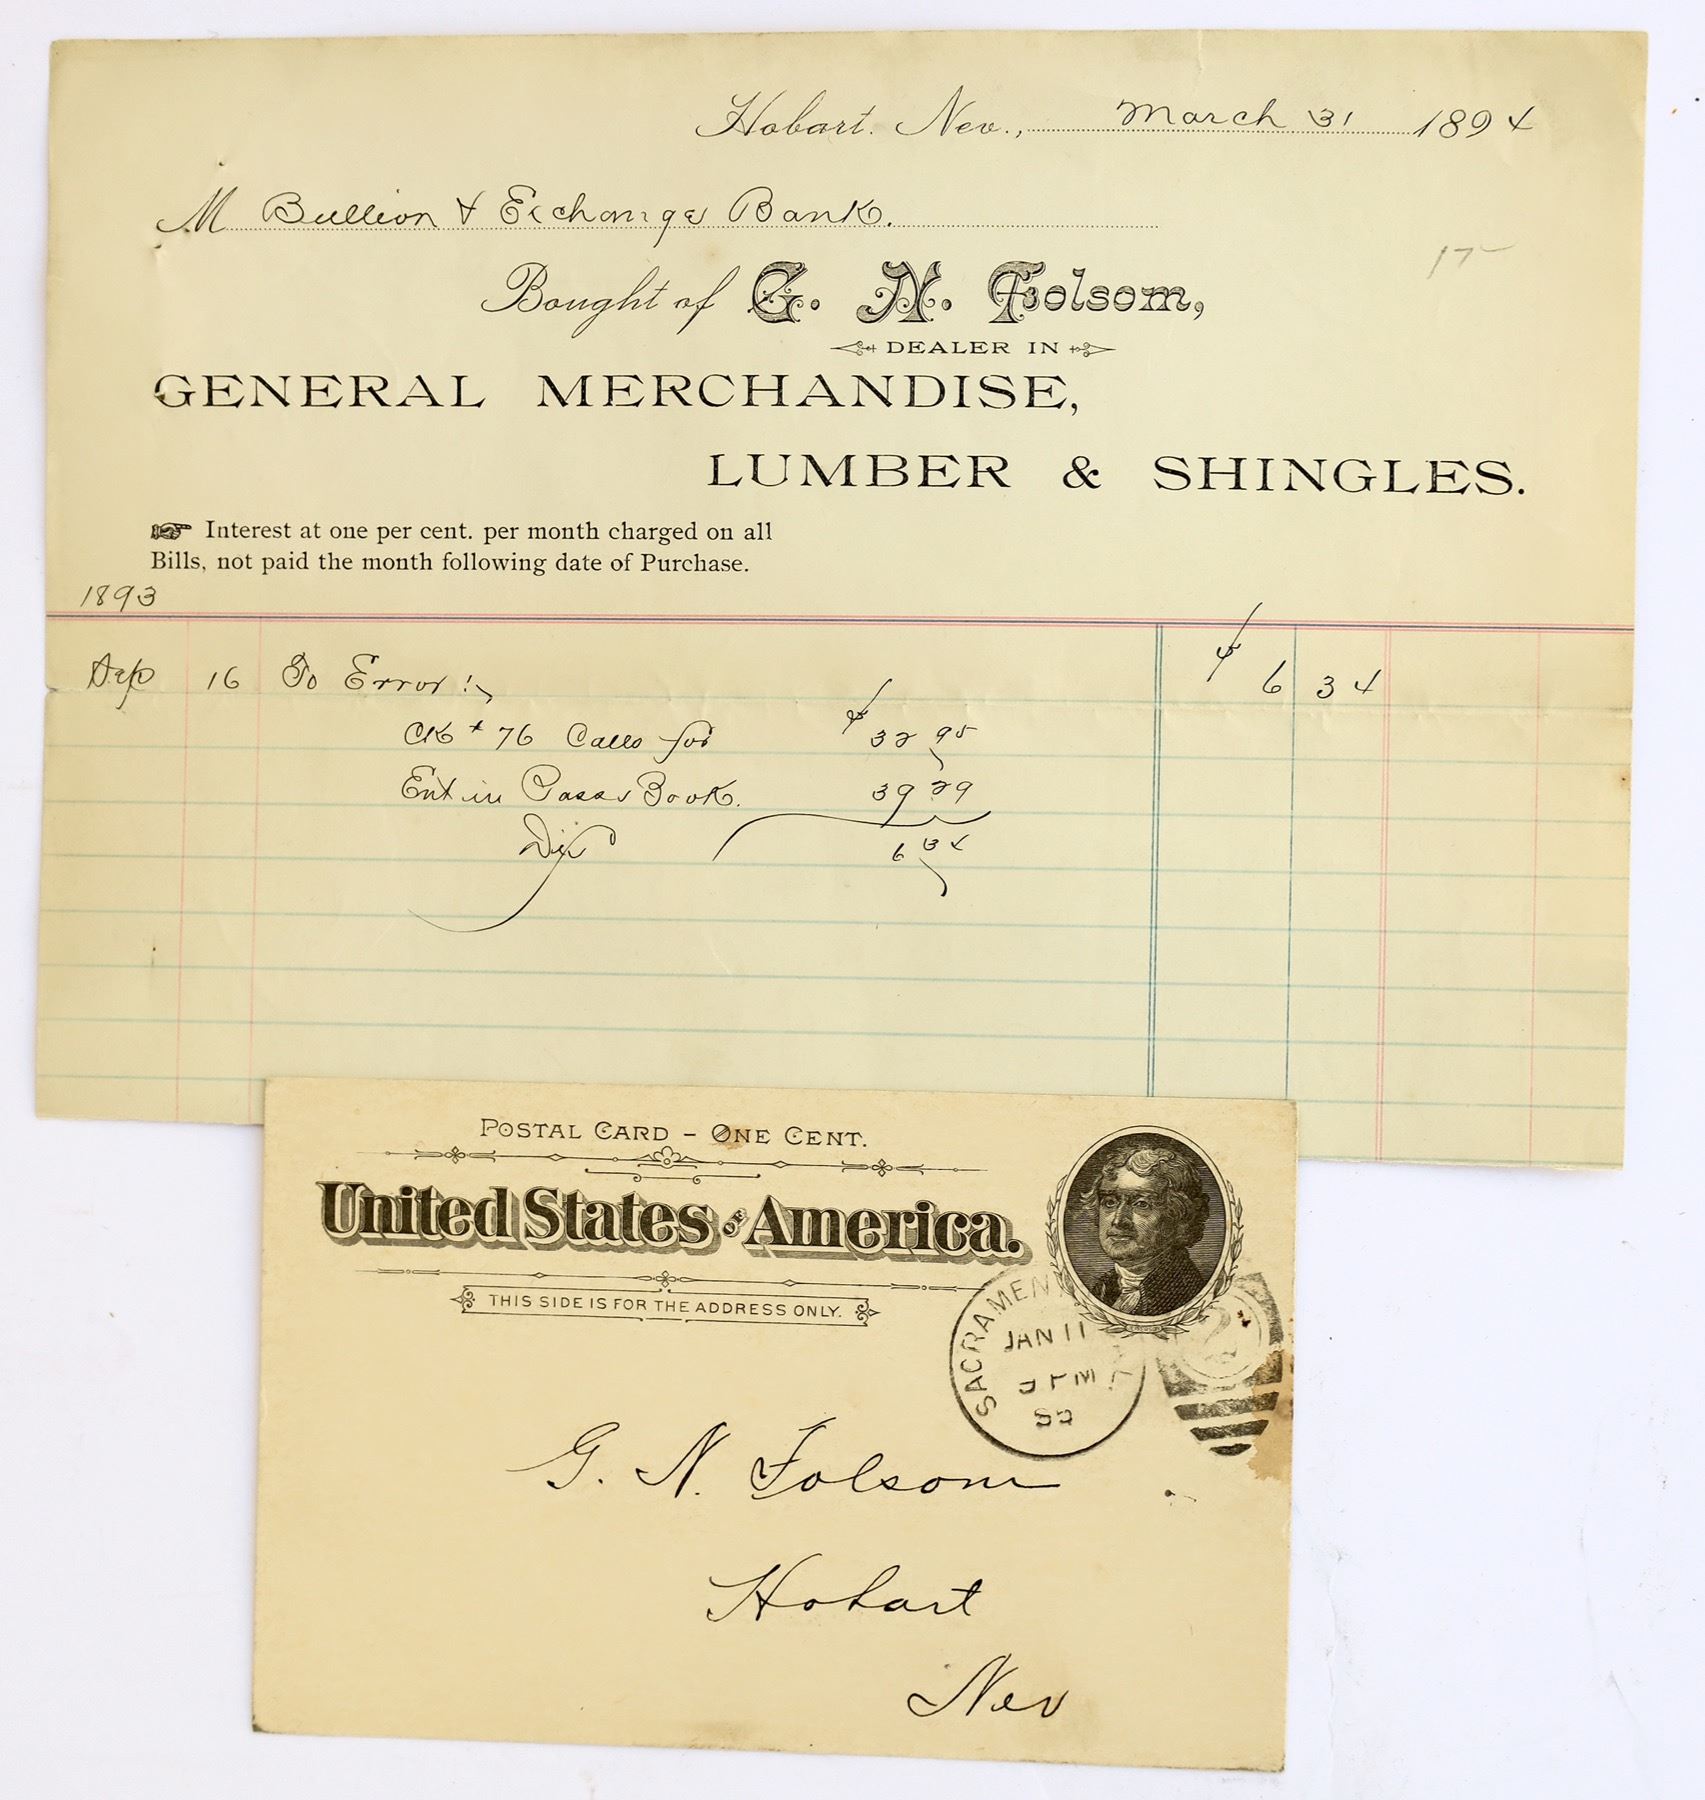 Hobart. Nev., March 31 1894
M Bullion & Exchange Bank.
17
Bought of G. N. Folsom,
DEALER IN
GENERAL MERCHANDISE,
LUMBER & SHINGLES.
Interest at one per cent. per month charged on all
Bills, not paid the month following date of Purchase.
1893
Sep 16 To Error! $ 6 34
CK # 76 Calls for $ 32 95
Ent in Pass Book. 39 29
Dif 6 34
POSTAL CARD – ONE CENT.
United States OF America.
THIS SIDE IS FOR THE ADDRESS ONLY.
SACRAMEN
JAN 11
PM
G. N. Folsom
Hobart
Nev